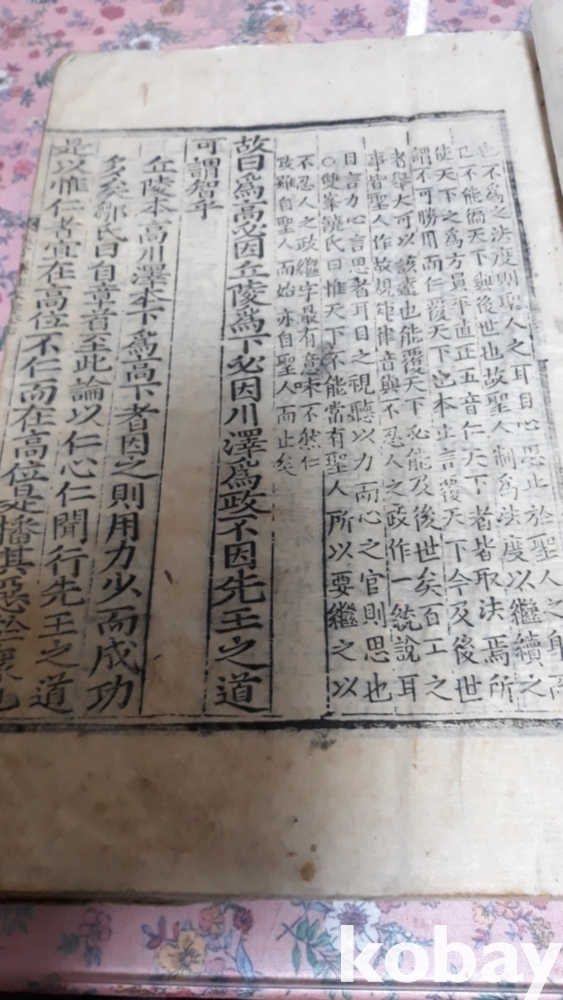 不為之法度則聖人之耳目心思止於聖人之身而
已不能徧天下與後世也故聖人制為法度以繼續之
使天下之為方員平直正五音仁天下者皆取法焉所
謂不可勝用而仁覆天下也本止言覆天下今及後世
者舉大可以該遠也能覆天下必能及後世矣百工之
事皆聖人作故規矩律音與不忍人之政作一統說耳
目言力心言思者耳目之視聽以力而心之官則思也
○雙峯饒氏曰惟天下不能當有聖人所以要繼之以
不忍人之政繼字最有意味不然仁
政雖自聖人而始亦自聖人而止矣
故曰為高必因丘陵為下必因川澤為政不因先王之道
可謂智乎
丘陵本高川澤本下為高下者因之則用力少而成功
多矣鄒氏曰自章首至此論以仁心仁聞行先王之道
是以惟仁者宜在高位不仁而在高位是播其惡於衆也
kobay